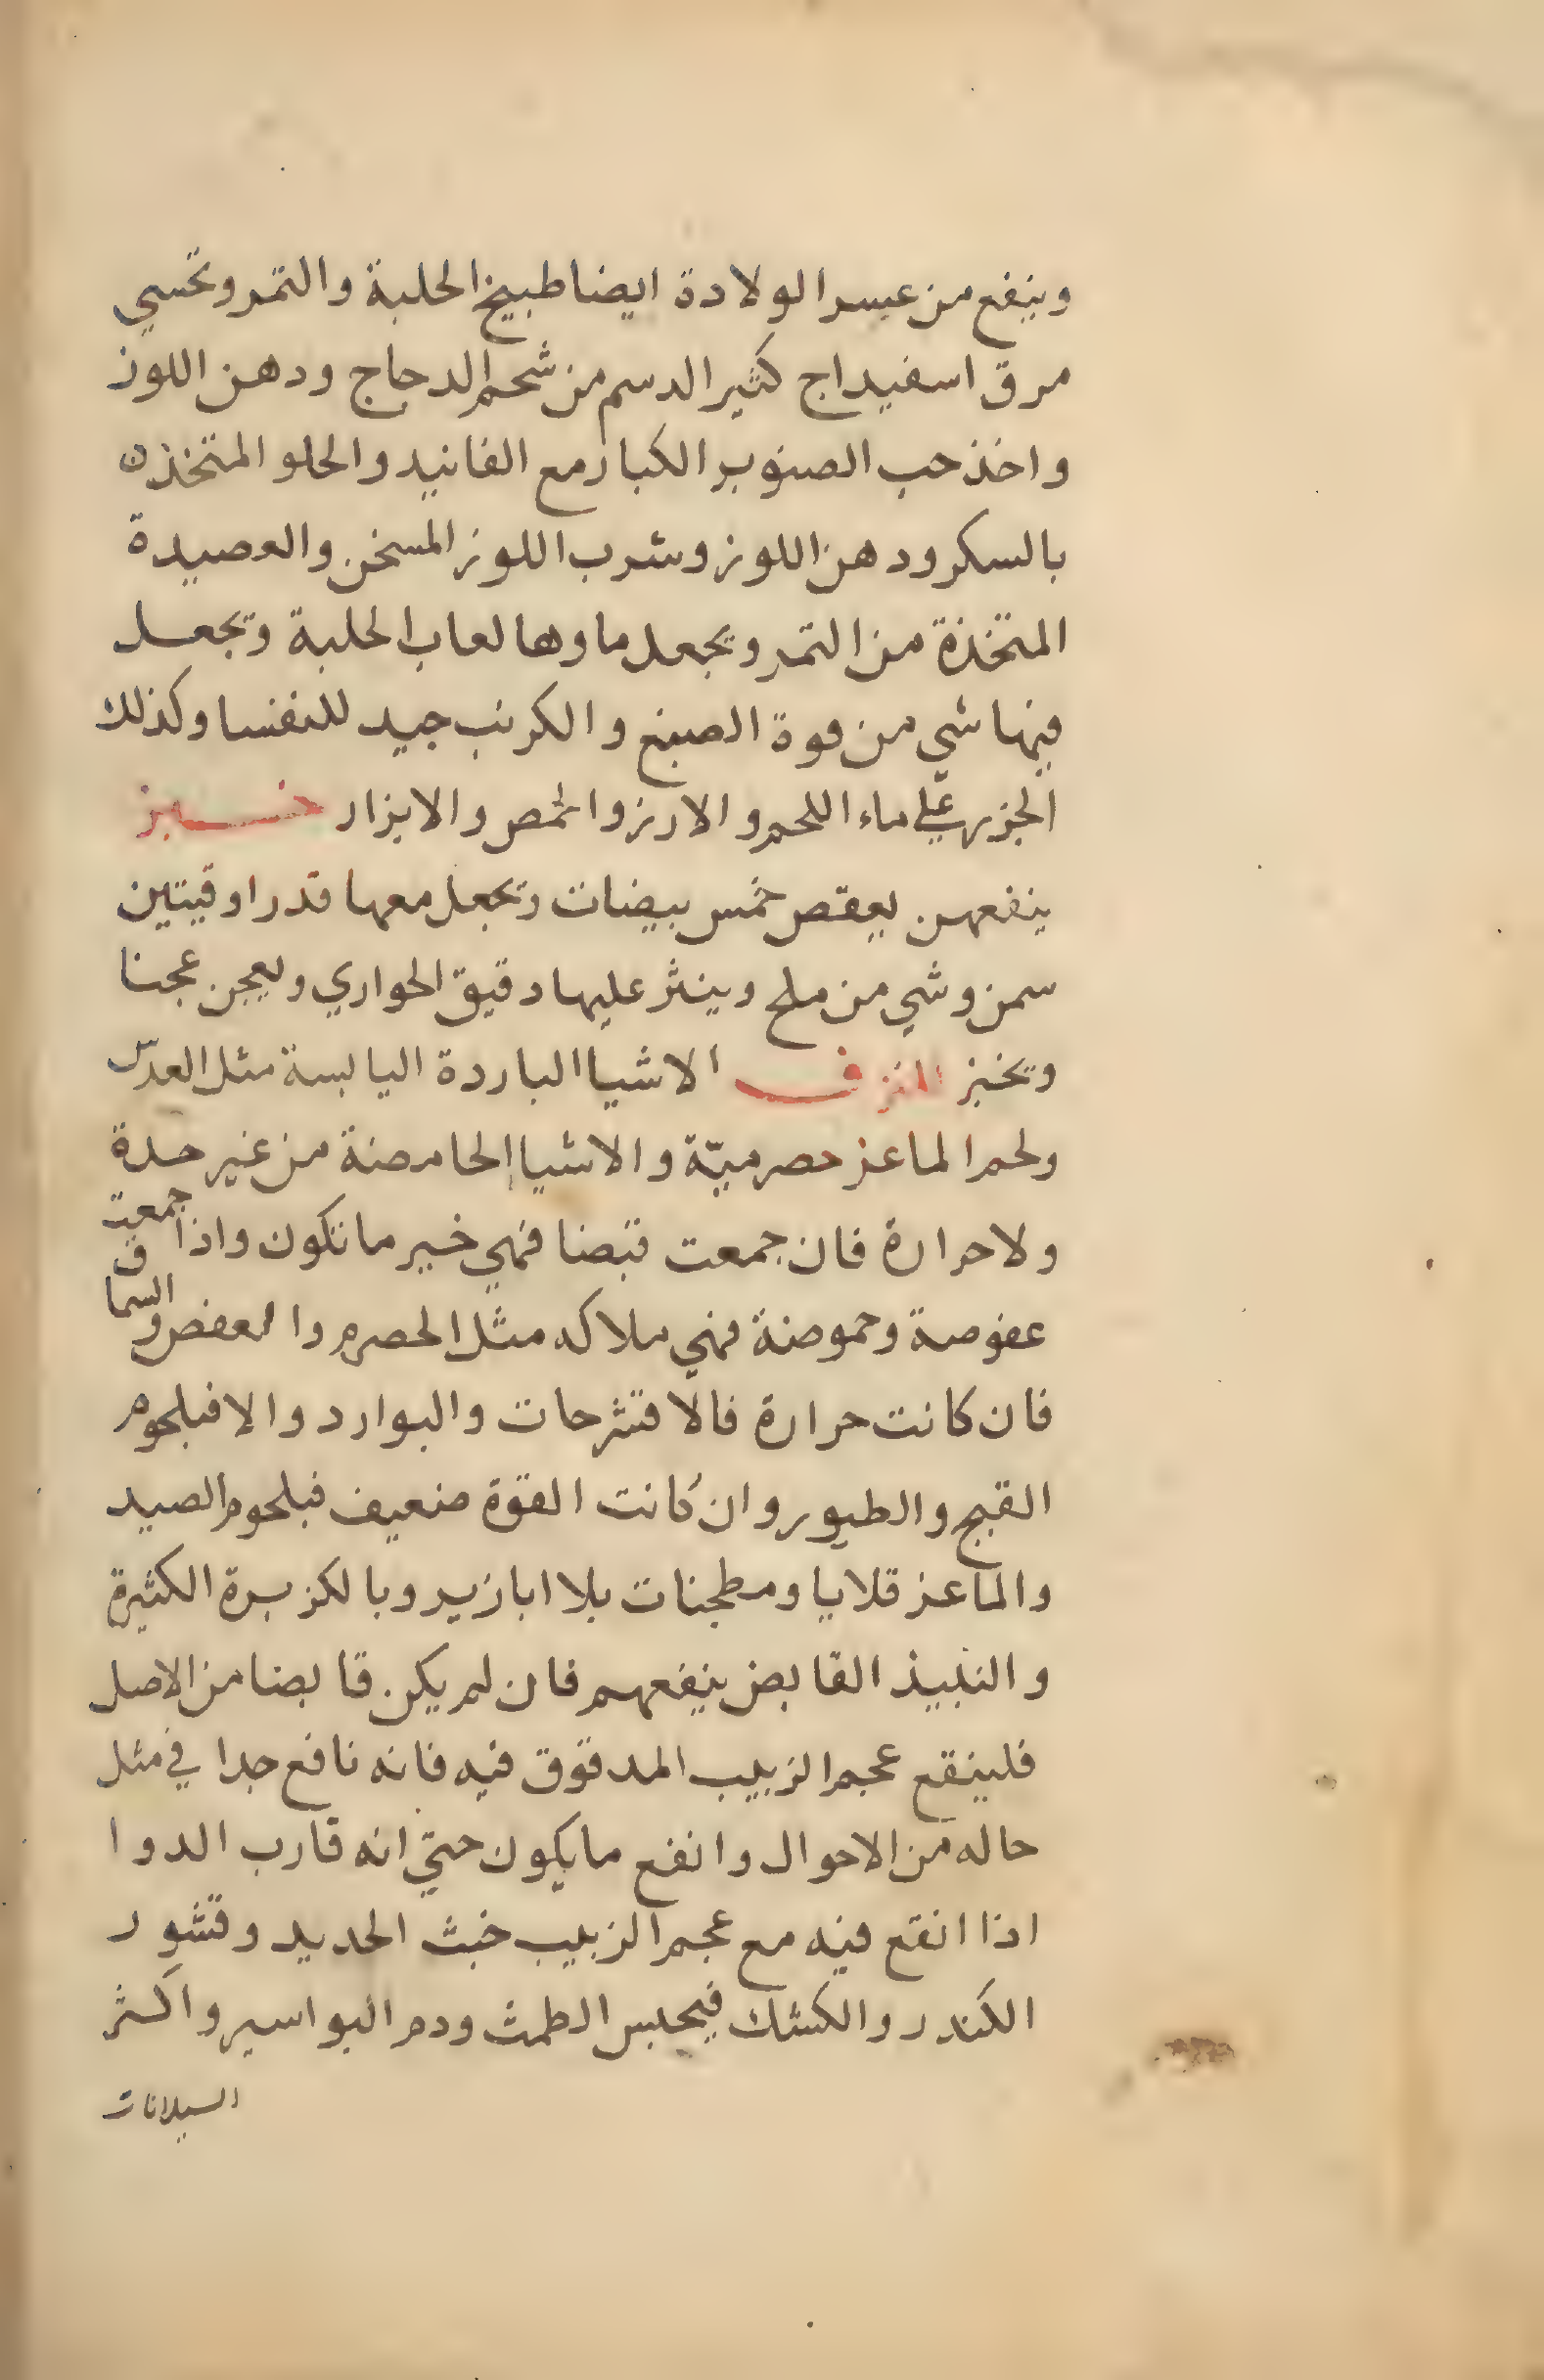 وينفع من عسر الولادة ايضا طبيخ الحلبة والتمر وتحسي
مرق اسفيداج كثير الدسم من شحم الدجاج ودهن اللوز
واخذ حب الصنوبر الكبار مع الفانيد والحلو المتخذه
بالسكر ودهن اللوز وشرب اللوز المسخن والعصيدة
المتخذة من التمر ويجعل ماوها لعاب الحلبة وتجعل
فيها شي من فوة الصبغ والكرنب جيد للنفسا وكذلك
الجزر علي ماء اللحم والارز والحمص والابزار خبز
ينفعهن يعقص خمس بيضات وتجعل معها قدر اوقيتين
سمن وشي من ملح وينثر عليها دقيق الحواري ويعجن عجنا
ويخبز المنزف الاشيا الباردة اليابسة مثل العدس
ولحم الماعز حصرميّة والاشيا الحامضة من غير حدة
ولا حرارة فان جمعت قبضا فهي خير ما تكون واذا جمعت
عفوصة وحموضة فهي ملاكه مثل الحصرم والعفص والسماق
فان كانت حرارة فالاقشرحات والبوارد والا فبلحوم
القبج والطيور وان كانت القوة ضعيف فبلحوم الصيد
والماعز قلايا ومطجنات بلا ابازير وبالكزبرة الكثيرة
والنبيذ القابض ينفعهم فان لم يكن قابضا من الاصل
فلينقع عجم الزبيب المدقوق فيه فانه نافع جدا في مثل
حاله من الاحوال وانفع ما يكون حتي انه قارب الدوا
اذا انقع فيه مع عجم الزبيب خبث الحديد وقشور
الكندر والكشك فيحبس الطمث ودم البواسير واكثر
السيلانات